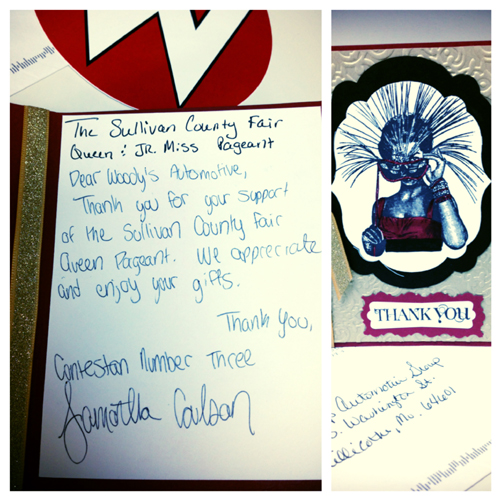 The Sullivan County Fair
Queen & JR. Miss Pageant
Dear Woody's Automotive,
Thank you for your support
of the Sullivan County Fair
Queen Pageant. We appreciate
and enjoy your gifts.
Thank You,
Contestan Number Three
Samatha Coulson
THANK YOU
Automotive Group
Washington St.
illicothe, Mo. 64601